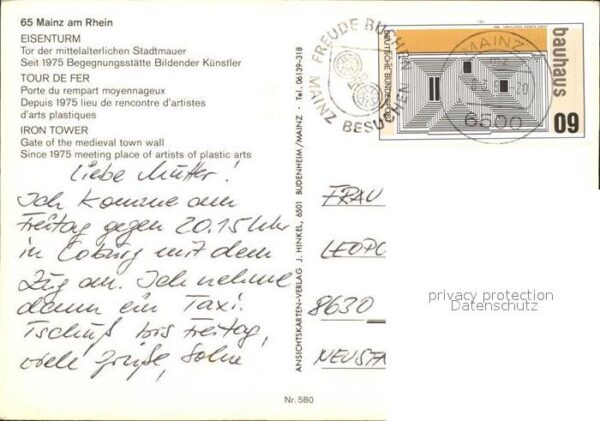 65 Mainz am Rhein
EISENTURM
Tor der mittelalterlichen Stadtmauer
Seit 1975 Begegnungsstätte Bildender Künstler
TOUR DE FER
Porte du rempart moyennageux
Depuis 1975 lieu de rencontre d'artistes
d'arts plastiques
IRON TOWER
Gate of the medieval town wall
Since 1975 meeting place of artists of plastic arts
Liebe Mutter!
Ich komme am
Freitag gegen 20.15 Uhr
in Coburg mit dem
Zug an. Ich nehme
dann ein Taxi.
Tschüß bis Freitag,
viele Grüße,
ANSICHTSKARTEN-VERLAG J. HINKEL, 6501 BUDENHEIM/MAINZ · Tel. 06139-318
FREUDE BUCHEN
MAINZ BESUCHEN
MAINZ
6500
DEUTSCHE BUNDESPOST
bauhaus
60
FRAU
LEOPO
8630
NEUSTA
privacy protection
Datenschutz
Nr. 580